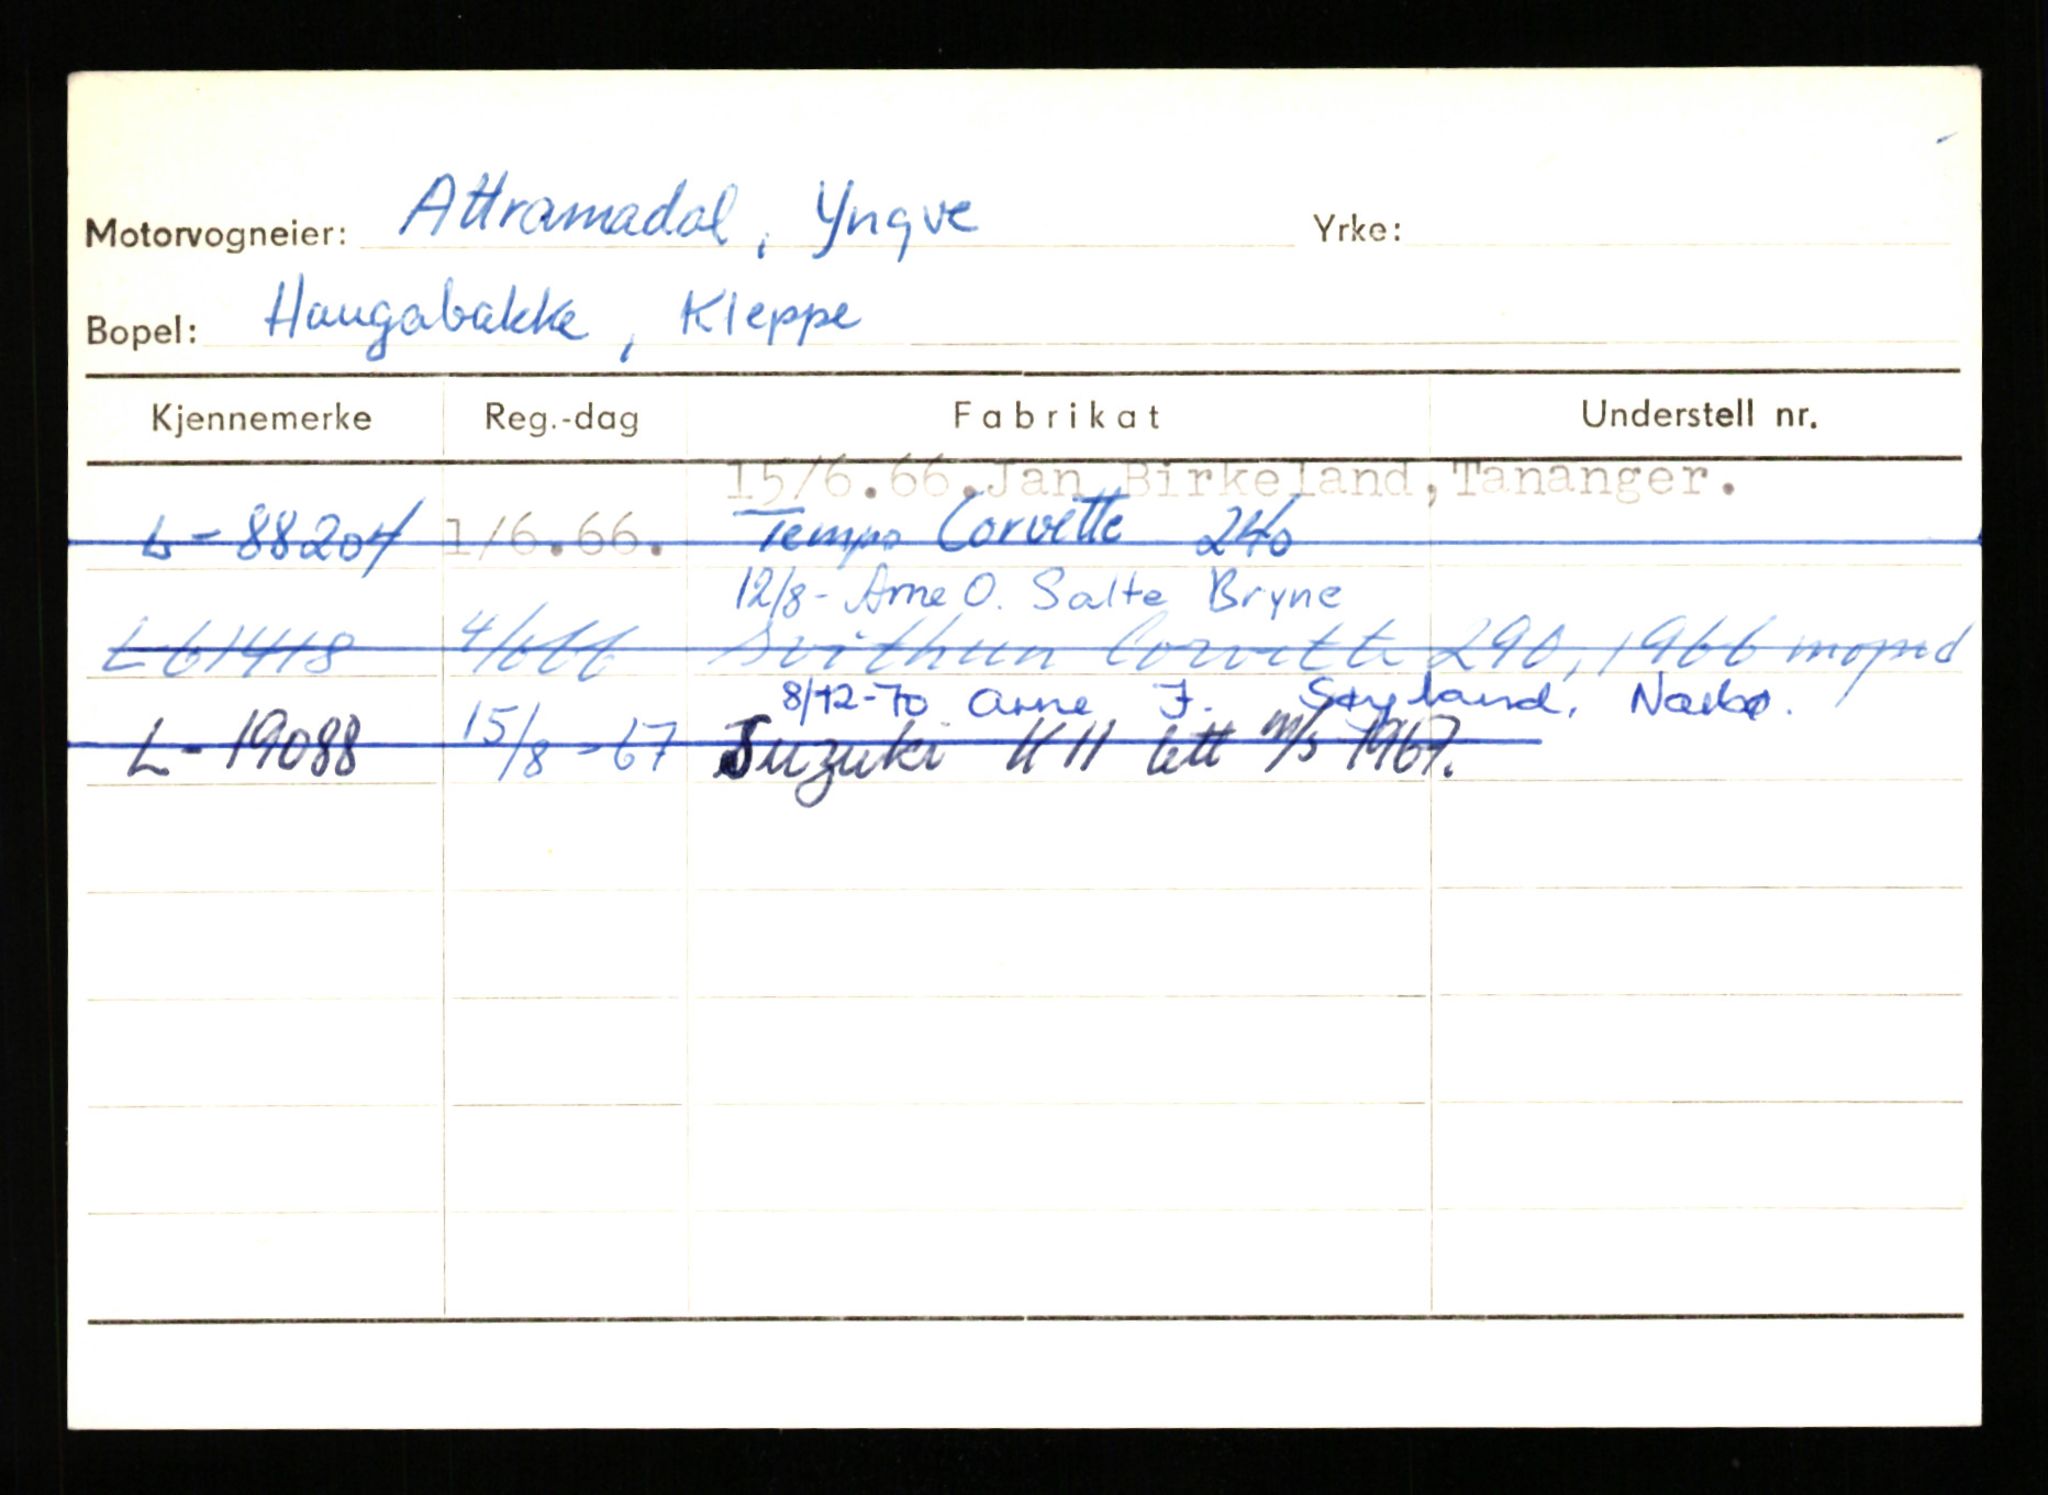 Motorvogneier: Attramadal, Yngve Yrke:
Bopel: Haugabakke, Kleppe
Kjennemerke Reg.-dag Fabrikat Understell nr.
15/6.66. Jan Birkeland, Tananger.
L-88204 1/6.66. Tempo Corvette 240
12/8- Arne O. Salte Bryne
L61418 4/666 Svithun Corvette 290, 1966 moped
8/12-70 Arne J. Søyland, Nærbø.
L-19088 15/8-67 Suzuki K11 lett m/s 1967.